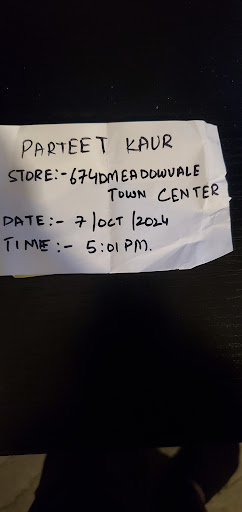 PARTEET KAUR
STORE:-674DMEADOWVALE
TOWN CENTER
DATE:- 7/OCT/2024
TIME:- 5:01 PM.